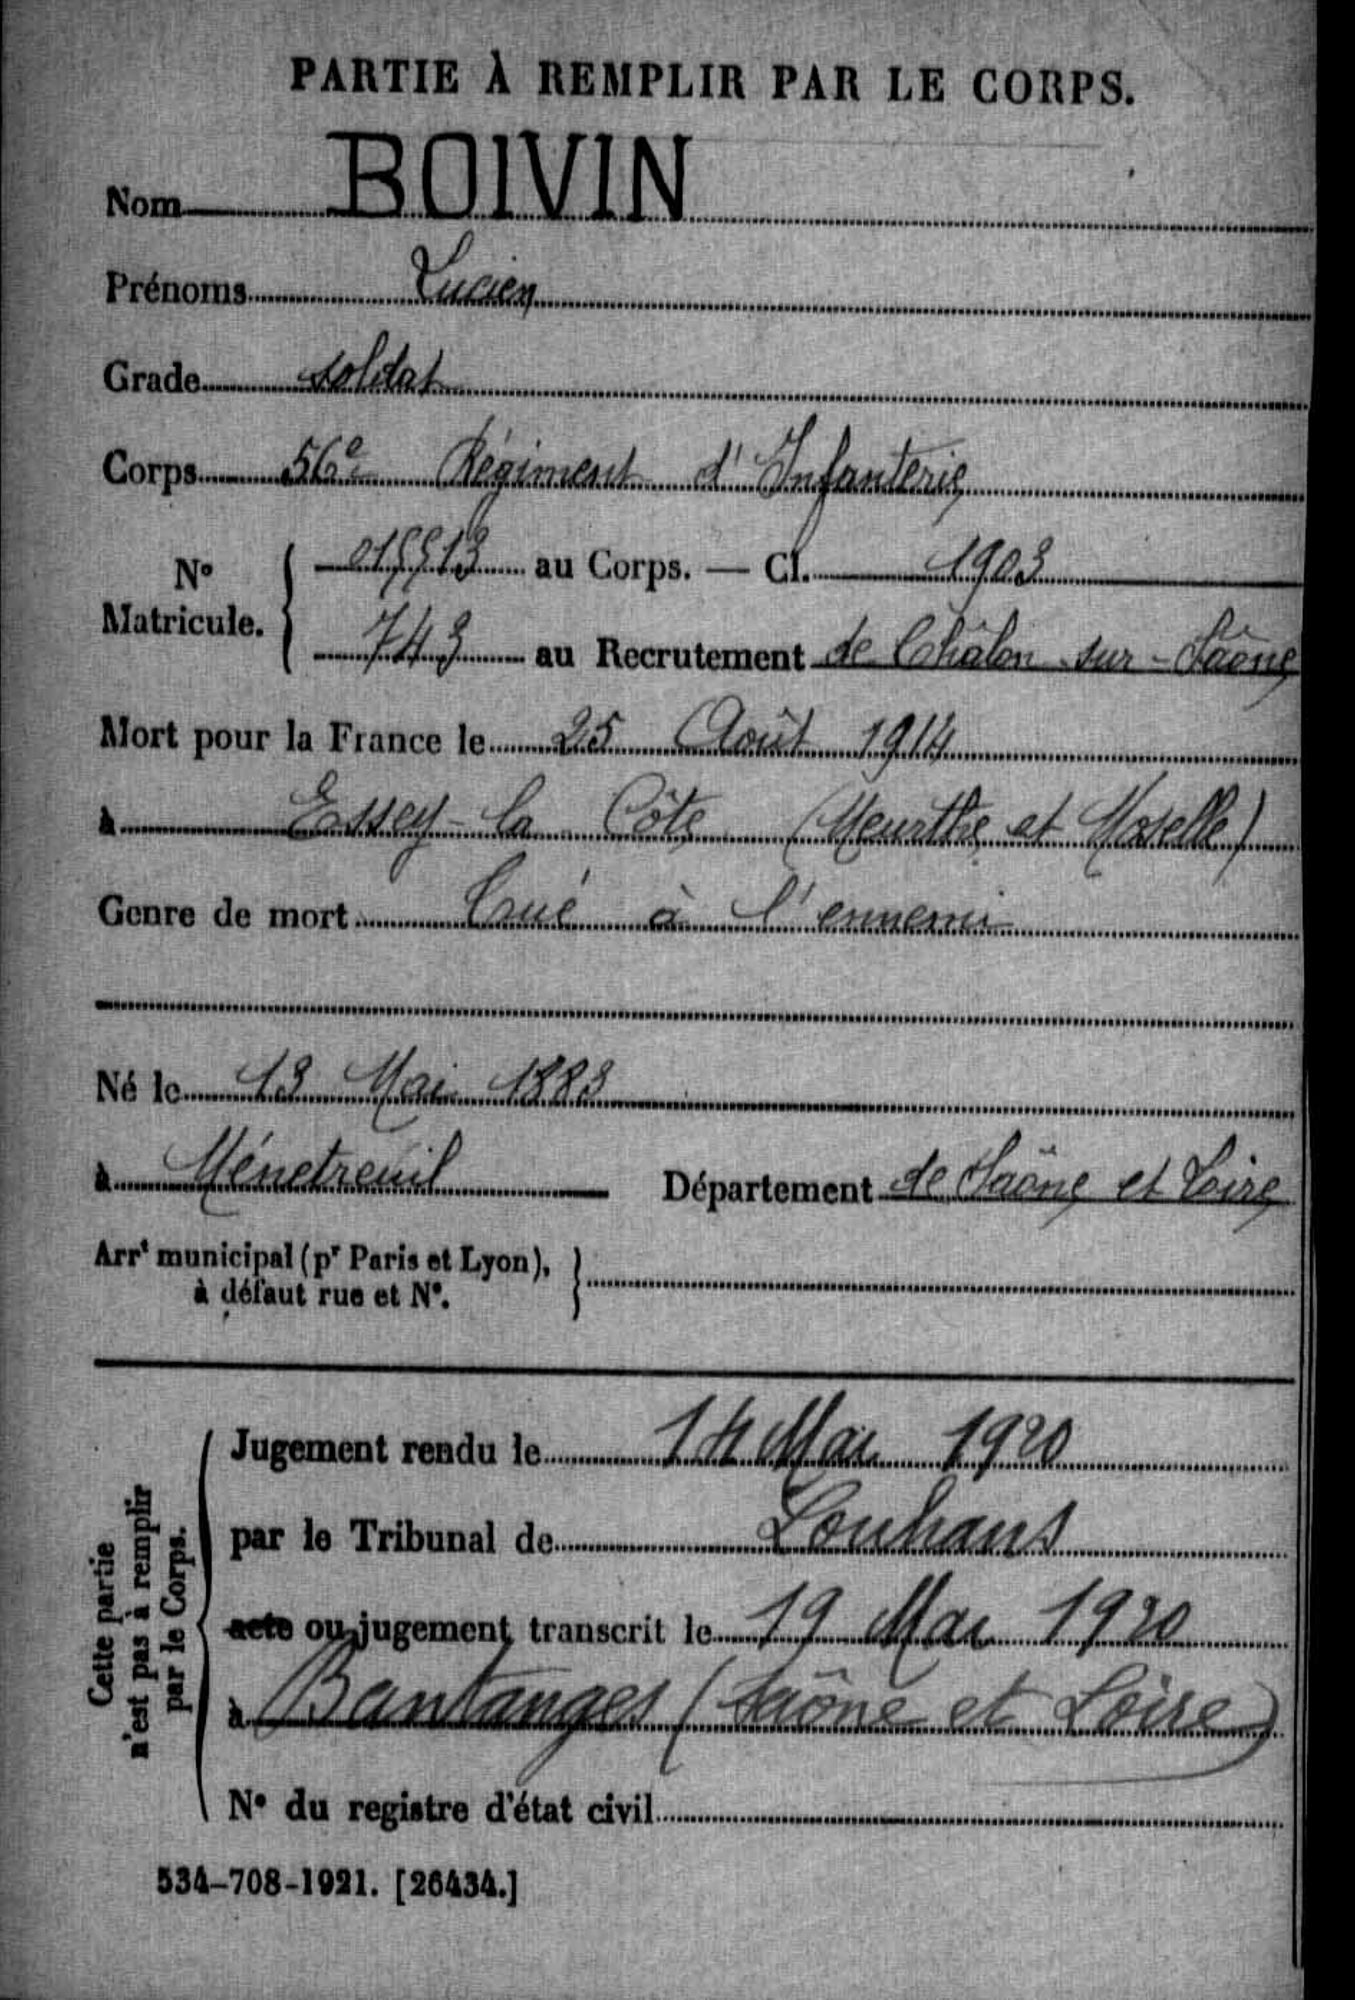 PARTIE À REMPLIR PAR LE CORPS.
Nom BOIVIN
Prénoms Lucien
Grade soldat
Corps 56e Régiment d'Infanterie
N° Matricule. 015513 au Corps. — Cl. 1903
743 au Recrutement de Châlon-sur-Saône
Mort pour la France le 25 Août 1914
à Essey-la Côte (Meurthe et Moselle)
Genre de mort Tué à l'ennemi
Né le 13 Mai 1883
à Ménetreuil Département de Saône et Loire
Arrt municipal (pr Paris et Lyon),
à défaut rue et N°.
Cette partie
n'est pas à remplir
par le Corps.
Jugement rendu le 14 Mai 1920
par le Tribunal de Louhans
acte ou jugement transcrit le 19 Mai 1920
à Bantanges (Saône et Loire)
N° du registre d'état civil
534-708-1921. [26434.]